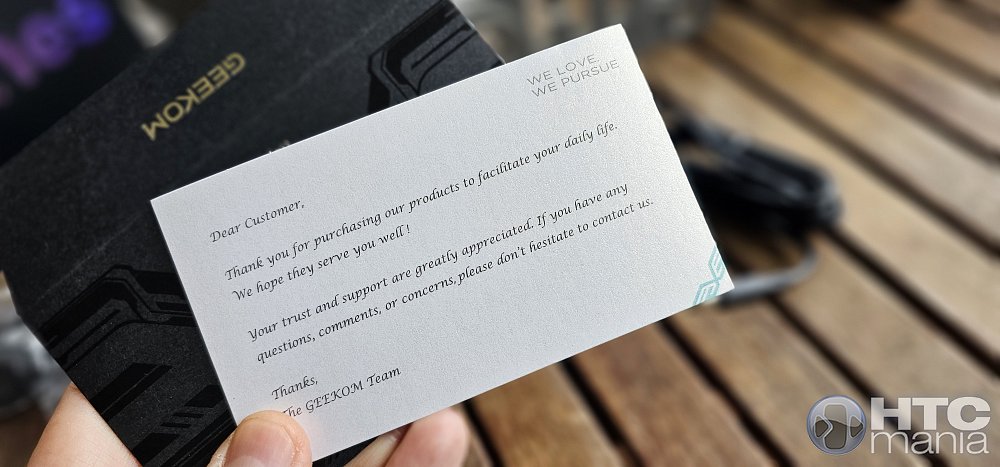 GEEKOM
WE LOVE
WE PURSUE
Dear Customer,
Thank you for purchasing our products to facilitate your daily life.
We hope they serve you well !
Your trust and support are greatly appreciated. If you have any
questions, comments, or concerns,please don't hesitate to contact us.
Thanks,
The GEEKOM Team
HTC
mania